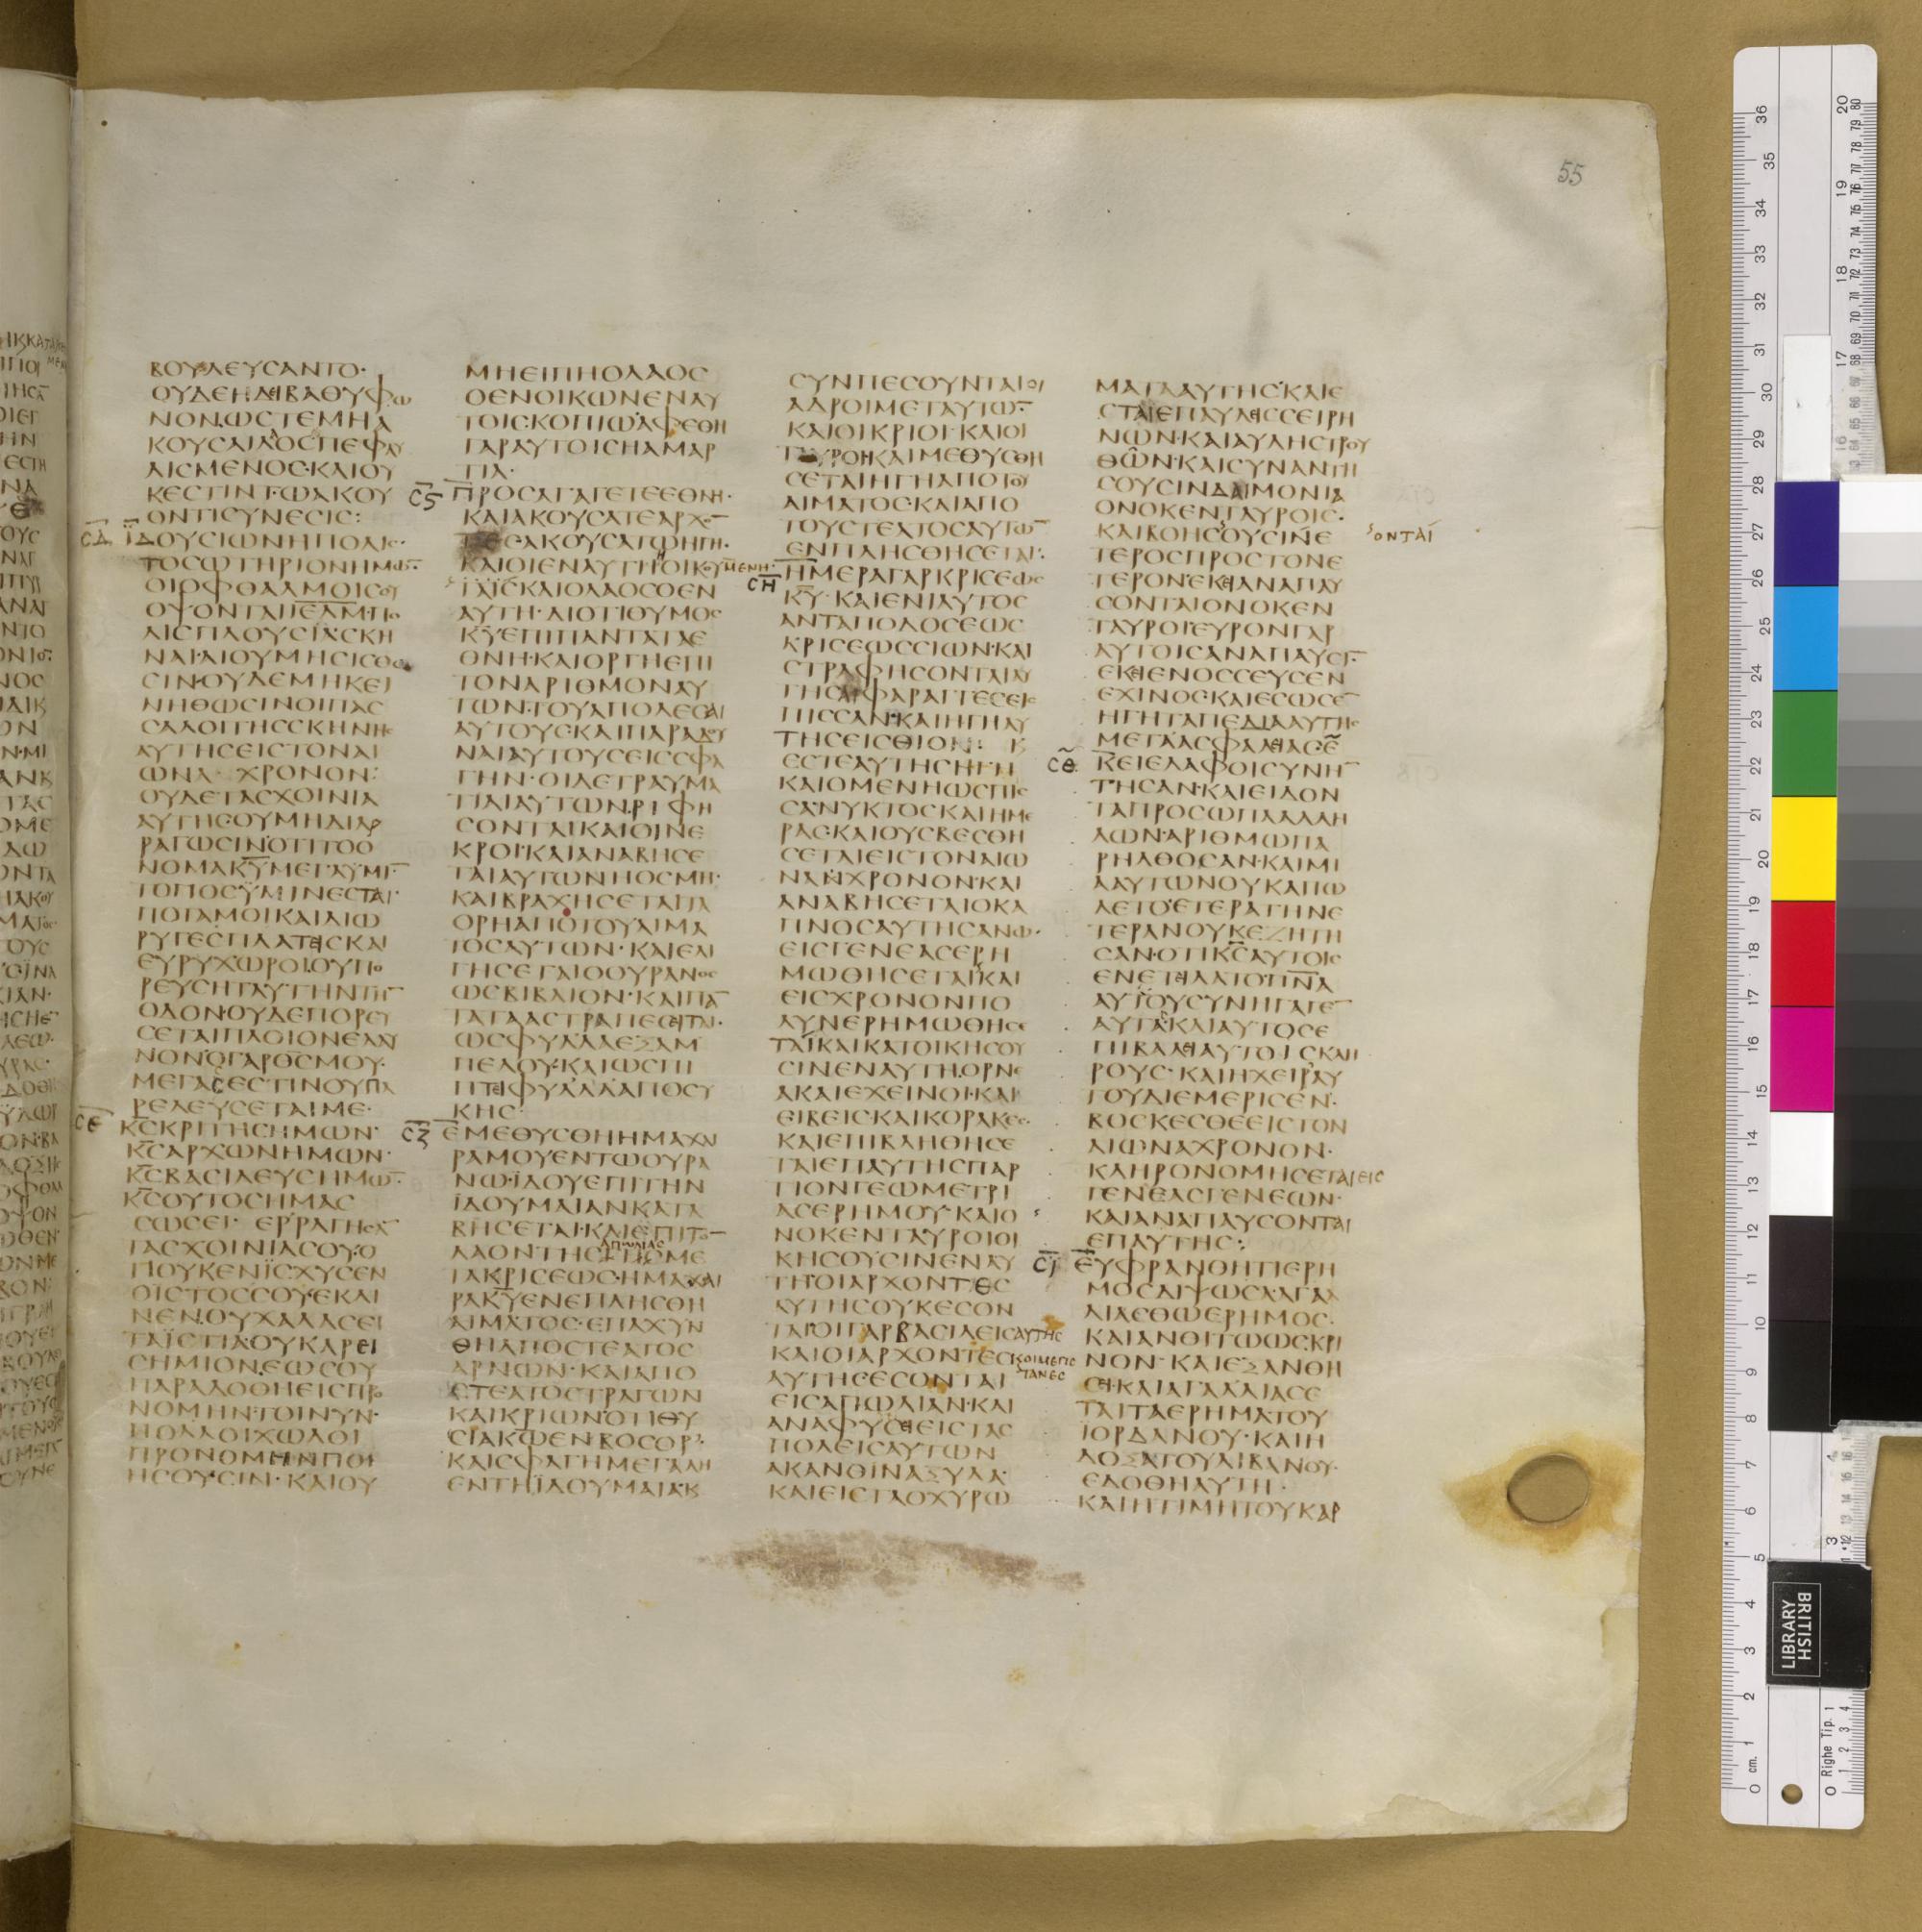 55
ΒΟΥΛΕΥΣΑΝΤΟ·
ΟΥΔΕΗΔΕΙΒΑΘΥΦΩ
ΝΟΝ·ΩΣΤΕΜΗΑ
ΚΟΥΣΑΙΛΑΟΣΠΕΦΑΥ
ΛΙΣΜΕΝΟΣ·ΚΑΙΟΥ
ΚΕΣΤΙΝΤΩΑΚΟΥ
ΟΝΤΙΣΥΝΕΣΙΣ:
ΣΔ ΪΔΟΥΣΙΩΝΗΠΟΛΙΣ·
ΤΟΣΩΤΗΡΙΟΝΗΜΩ̅·
ΟΙΟΦΘΑΛΜΟΙΣΟΥ
ΟΨΟΝΤΑΙΙΕΛΗΜΠΟ
ΛΙΣΠΛΟΥΣΙΑΣΚΗ
ΝΑΙ·ΑΙΟΥΜΗΣΙΣΘΩ
ΣΙΝ·ΟΥΔΕΜΗΚΕΙ
ΝΗΘΩΣΙΝΟΙΠΑΣ
ΣΑΛΟΙΤΗΣΣΚΗΝΗΣ
ΑΥΤΗΣΕΙΣΤΟΝΑΙ
ΩΝΑ ΧΡΟΝΟΝ:
ΟΥΔΕΤΑΣΧΟΙΝΙΑ
ΑΥΤΗΣΟΥΜΗΔΙΑΡ
ΡΑΓΩΣΙΝΟΤΙΤΟΟ
ΝΟΜΑΚ̅Υ̅ΜΕΓΑΫΜΙ̅
ΤΟΠΟΣΫΜΙΝΕΣΤΑΙ·
ΠΟΤΑΜΟΙΚΑΙΔΙΩ
ΡΥΓΕΣΠΛΑΤΕΙΣΚΑΙ
ΕΥΡΥΧΩΡΟΙ·ΟΥΠΟ
ΡΕΥΣΗΤΑΥΤΗΝΤΗ̅
ΟΔΟΝ·ΟΥΔΕΠΟΡΕΥ
ΣΕΤΑΙΠΛΟΙΟΝΕΛΑΥ
ΝΟΝ·ΟΓΑΡΘΣΜΟΥ·
ΜΕΓΑΣΕΣΤΙΝΟΥΠΑ
ΡΕΛΕΥΣΕΤΑΙΜΕ·
ΣΕ Κ̅Σ̅ΚΡΙΤΗΣΗΜΩΝ·
Κ̅Σ̅ΑΡΧΩΝΗΜΩΝ·
Κ̅Σ̅ΒΑΣΙΛΕΥΣΗΜΩ̅·
Κ̅Σ̅ΟΥΤΟΣΗΜΑΣ
ΣΩΣΕΙ· ΕΡΡΑΓΗΣΑ̅
ΤΑΣΧΟΙΝΙΑΣΟΥ·Ο
ΠΟΥΚΕΝΪΣΧΥΣΕΝ
ΟΙΣΤΟΣΣΟΥ·ΕΚΛΙ
ΝΕΝ·ΟΥΧΑΛΑΣΕΙ
ΤΑΪΣΤΙΑ·ΟΥΚΑΡΕΙ
ΣΗΜΙΟΝ·ΕΩΣΟΥ
ΠΑΡΑΔΟΘΗΕΙΣΠΡΟ
ΝΟΜΗΝ·ΤΟΙΝΥΝ·
ΠΟΛΛΟΙΧΩΛΟΙ
ΠΡΟΝΟΜΗΝΠΟΙ
ΗΣΟΥΣΙΝ· ΚΑΙΟΥ
ΜΗΕΙΠΗΟΛΑΟΣ
ΟΕΝΟΙΚΩΝΕΝΑΥ
ΤΟΙΣ·ΚΟΠΙΩΑΦΕΘΗ
ΓΑΡΑΥΤΟΙΣΗΑΜΑΡ
ΤΙΑ·
Σ̅Ϛ̅ ΠΡΟΣΑΓΑΓΕΤΕΕΘΝΗ·
ΚΑΙΑΚΟΥΣΑΤΕΑΡΧΟ̅
ΤΕΣ·ΑΚΟΥΣΑΤΩΗΓΗ·
ΚΑΙΟΙΕΝΑΥΤΗΗΟΙΚΟΥΜΕΝΗ·
ΚΑΙΟΛΑΟΣΟΕΝ
ΑΥΤΗ·ΔΙΟΤΙΘΥΜΟΣ
Κ̅Υ̅ΕΠΙΠΑΝΤΑΤΑΕ
ΘΝΗ·ΚΑΙΟΡΓΗΕΠΙ
ΤΟΝΑΡΙΘΜΟΝΑΥ
ΤΩΝ·ΤΟΥΑΠΟΛΕΣΑΙ
ΑΥΤΟΥΣ·ΚΑΙΠΑΡΑΔΟΥ
ΝΑΙΑΥΤΟΥΣΕΙΣΣΦΑ
ΓΗΝ·ΟΙΔΕΤΡΑΥΜΑ
ΤΙΑΙΑΥΤΩΝ·ΡΙΦΗ
ΣΟΝΤΑΙΚΑΙΟΙΝΕ
ΚΡΟΙ·ΚΑΙΑΝΑΒΗΣΕ
ΤΑΙΑΥΤΩΝΗΟΣΜΗ·
ΚΑΙΒΡΑΧΗΣΕΤΑΙΤΑ
ΟΡΗΑΠΟΤΟΥΑΙΜΑ
ΤΟΣΑΥΤΩΝ· ΚΑΙΕΛΙ
ΓΗΣΕΤΑΙΟΟΥΡΑΝΟΣ
ΩΣΒΙΒΛΙΟΝ·ΚΑΙΠΑ̅
ΤΑΤΑΑΣΤΡΑΠΕΣΕΙΤΑΙ·
ΩΣΦΥΛΛΑΕΞΑΜ
ΠΕΛΟΥ·ΚΑΙΩΣΠΙ
ΠΤΕΙΦΥΛΛΑΑΠΟΣΥ
ΚΗΣ·
Σ̅Ζ̅ ΕΜΕΘΥΣΘΗΗΜΑΧΑΙ
ΡΑΜΟΥΕΝΤΩΟΥΡΑ
ΝΩ·ΪΔΟΥΕΠΙΤΗΝ
ΙΔΟΥΜΑΙΑΝΚΑΤΑ
ΒΗΣΕΤΑΙ·ΚΑΙΕΠΙΤΟ̅
ΑΠΩΛΙΑΣ
ΛΑΟΝΤΗΣΓΗΣΜΕ
ΤΑΚΡΙΣΕΩΣ·ΗΜΑΧΑΙ
ΡΑΚ̅Υ̅ΕΝΕΠΛΗΣΘΗ
ΑΙΜΑΤΟΣ·ΕΠΑΧΥΝ
ΘΗΑΠΟΣΤΕΑΤΟΣ
ΑΡΝΩΝ·ΚΑΙΑΠΟ
ΣΤΕΑΤΟΣΤΡΑΓΩΝ
ΚΑΙΚΡΙΩΝ·ΟΤΙΘΥ
ΣΙΑΚ̅Ω̅ΕΝΒΟΣΟΡ·
ΚΑΙΣΦΑΓΗΜΕΓΑΛΗ
ΕΝΤΗΪΔΟΥΜΑΙΑ·Κ
ΣΥΝΠΕΣΟΥΝΤΑΙΟΙ
ΑΔΡΟΙΜΕΤΑΥΤΩ̅·
ΚΑΙΟΙΚΡΙΟΙ·ΚΑΙΟΙ
ΤΑΥΡΟΙ·ΚΑΙΜΕΘΥΣΘΗ
ΣΕΤΑΙΗΓΗΑΠΟΤΟΥ
ΑΙΜΑΤΟΣ·ΚΑΙΑΠΟ
ΤΟΥΣΤΕΑΤΟΣΑΥΤΩ̅
ΕΝΠΛΗΣΘΗΣΕΤΑΙ:
Σ̅Η̅ ΗΜΕΡΑΓΑΡΚΡΙΣΕΩΣ
Κ̅Υ̅·ΚΑΙΕΝΙΑΥΤΟΣ
ΑΝΤΑΠΟΔΟΣΕΩΣ
ΚΡΙΣΕΩΣΣΙΩΝ·ΚΑΙ
ΣΤΡΑΦΗΣΟΝΤΑΙΑΥ
ΤΗΣΑΙΦΑΡΑΓΓΕΣΕΙΣ
ΠΙΣΣΑΝ·ΚΑΙΗΓΗΑΥ
ΤΗΣΕΙΣΘΙΟΝ: Κ
ΕΣΤΕΑΥΤΗΣΗΓΗ
ΚΑΙΟΜΕΝΗΩΣΠΙΣ
ΣΑ·ΝΥΚΤΟΣΚΑΙΗΜΕ
ΡΑΣ·ΚΑΙΟΥΣΒΕΣΘΗ
ΣΕΤΑΙΕΙΣΤΟΝΑΙΩ
ΝΑΧΡΟΝΟΝ·ΚΑΙ
ΑΝΑΒΗΣΕΤΑΙΟΚΑ
ΠΝΟΣΑΥΤΗΣΑΝΩ·
ΕΙΣΓΕΝΕΑΣΕΡΗ
ΜΩΘΗΣΕΤΑΙ·ΚΑΙ
ΕΙΣΧΡΟΝΟΝΠΟ
ΛΥΝΕΡΗΜΩΘΗΣΕ
ΤΑΙΚΑΙΚΑΤΟΙΚΗΣΟΥ
ΣΙΝΕΝΑΥΤΗ·ΟΡΝΕ
ΑΚΑΙΕΧΕΙΝΟΙ·ΚΑΙ
ΕΙΒΕΙΣ·ΚΑΙΚΟΡΑΚΕΣ·
ΚΑΙΕΠΙΒΛΗΘΗΣΕ
ΤΑΙΕΠΑΥΤΗΣΠΑΡ
ΤΙΟΝΓΕΩΜΕΤΡΙ
ΑΣΕΡΗΜΟΥ·ΚΑΙΟ
ΝΟΚΕΝΤΑΥΡΟΙΟΙ
ΚΗΣΟΥΣΙΝΕΝΑΥ
ΤΗ·ΟΙΑΡΧΟΝΤΕΣ
ΑΥΤΗΣΟΥΚΕΣΟΝ
ΤΑΙ·ΟΙΓΑΡΒΑΣΙΛΕΙΣΑΥΤΗΣ
ΚΑΙΟΙΑΡΧΟΝΤΕΣΚΟΙΜΕΓΙΣ
ΤΑΝΕΣ
ΑΥΤΗΣΕΣΟΝΤΑΙ
ΕΙΣΑΠΩΛΙΑΝ·ΚΑΙ
ΑΝΑΦΥΣΕΙΕΙΣΤΑΣ
ΠΟΛΕΙΣΑΥΤΩΝ
ΑΚΑΝΘΙΝΑΞΥΛΑ·
ΚΑΙΕΙΣΤΑΟΧΥΡΩ
ΜΑΤΑΑΥΤΗΣ·ΚΑΙΕ
ΣΤΑΙΕΠΑΥΛΕΙΣΣΕΙΡΗ
ΝΩΝ·ΚΑΙΑΥΛΗΣΤΡΟΥ
ΘΩΝ·ΚΑΙΣΥΝΑΝΤΗ
ΣΟΥΣΙΝΔΑΙΜΟΝΙΑ
ΟΝΟΚΕΝΤΑΥΡΟΙΣ·
ΚΑΙΒΟΗΣΟΥΣΙΝΕ ΣΟΝΤΑΙ
ΤΕΡΟΣΠΡΟΣΤΟΝΕ
ΤΕΡΟΝ·ΕΚΕΙΑΝΑΠΑΥ
ΣΟΝΤΑΙΟΝΟΚΕΝ
ΤΑΥΡΟΙ·ΕΥΡΟΝΓΑΡ
ΑΥΤΟΙΣΑΝΑΠΑΥΣΙ̅·
ΕΚΕΙΕΝΟΣΣΕΥΣΕΝ
ΕΧΙΝΟΣ·ΚΑΙΕΣΩΣΕ̅
ΗΓΗΤΑΠΕΔΙΑΑΥΤΗΣ
ΜΕΤΑΑΣΦΑΛΕΙΑΣ·Ε̅
Σ̅Θ̅ ΚΕΙΕΛΑΦΟΙΣΥΝΗ̅
ΤΗΣΑΝ·ΚΑΙΕΙΔΟΝ
ΤΑΠΡΟΣΩΠΑΑΛΛΗ
ΛΩΝ·ΑΡΙΘΜΩΠΑ
ΡΗΛΘΟΣΑΝ·ΚΑΙΜΙ
ΑΑΥΤΩΝΟΥΚΑΠΩ
ΛΕΤΟ·ΕΤΕΡΑΤΗΝΕ
ΤΕΡΑΝΟΥΚΕΖΗΤΗ
ΣΑΝ·ΟΤΙΚ̅Σ̅ΑΥΤΟΙΣ
ΕΝΕΤΕΙΛΑΤΟΤΟΠ̅Ν̅Α̅
ΑΥΤΟΥΣΥΝΗΓΑΓΕ̅
ΑΥΤΑ·ΚΑΙΑΥΤΟΣΕ
ΠΙΒΑΛΕΙΑΥΤΟΙΣΚΛΗ
ΡΟΥΣ·ΚΑΙΗΧΕΙΡΑΥ
ΤΟΥΔΙΕΜΕΡΙΣΕΝ·
ΒΟΣΚΕΣΘΕΕΙΣΤΟΝ
ΑΙΩΝΑΧΡΟΝΟΝ·
ΚΛΗΡΟΝΟΜΗΣΕΤΑΙΕΙΣ
ΓΕΝΕΑΣΓΕΝΕΩΝ·
ΚΑΙΑΝΑΠΑΥΣΟΝΤΑΙ
ΕΠΑΥΤΗΣ:
Σ̅Ι̅ ΕΥΦΡΑΝΘΗΤΙΕΡΗ
ΜΟΣΔΙΨΩΣΑ·ΑΓΑΛ
ΛΙΑΣΘΩΕΡΗΜΟΣ·
ΚΑΙΑΝΘΙΤΩΩΣΚΡΙ
ΝΟΝ·ΚΑΙΕΞΑΝΘΗ
ΣΕΙ·ΚΑΙΑΓΑΛΛΙΑΣΕ
ΤΑΙΤΑΕΡΗΜΑΤΟΥ
ΙΟΡΔΑΝΟΥ·ΚΑΙΗ
ΔΟΞΑΤΟΥΛΙΒΑΝΟΥ·
ΕΔΟΘΗΑΥΤΗ·
ΚΑΙΗΤΙΜΗΤΟΥΚΑΡ
BRITISH
LIBRARY
Righe Tip.
cm.